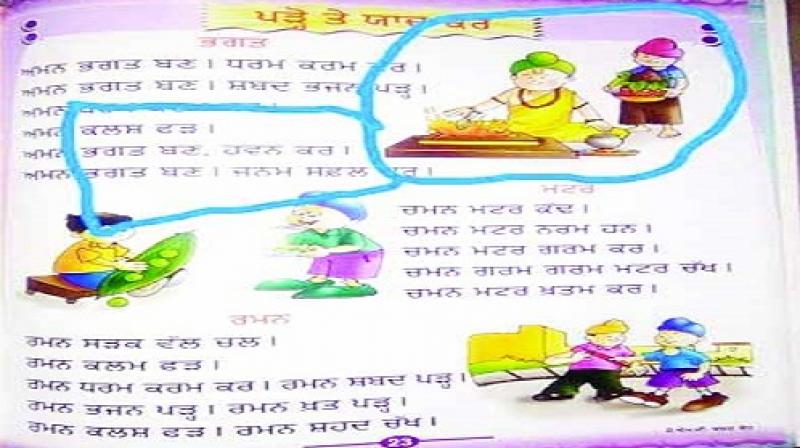 ਪੜ੍ਹੋ ਤੇ ਯਾਦ ਕਰ
ਭਗਤ
ਅਮਨ ਭਗਤ ਬਣ । ਧਰਮ ਕਰਮ ਕਰ ।
ਅਮਨ ਭਗਤ ਬਣ । ਸ਼ਬਦ ਭਜਨ ਪੜ੍ਹ ।
ਅਮਨ
ਅਮਨ ਕਲਸ਼ ਫੜ ।
ਅਮਨ ਭਗਤ ਬਣ, ਹਵਨ ਕਰ ।
ਅਮਨ ਭਗਤ ਬਣ । ਜਨਮ ਸਫ਼ਲ ਕਰ ।
ਮਟਰ
ਚਮਨ ਮਟਰ ਕੱਢ ।
ਚਮਨ ਮਟਰ ਨਰਮ ਹਨ ।
ਚਮਨ ਮਟਰ ਗਰਮ ਕਰ ।
ਚਮਨ ਗਰਮ ਗਰਮ ਮਟਰ ਚੱਖ ।
ਚਮਨ ਮਟਰ ਖ਼ਤਮ ਕਰ ।
ਰਮਨ
ਰਮਨ ਸੜਕ ਵੱਲ ਚਲ ।
ਰਮਨ ਕਲਮ ਫੜ ।
ਰਮਨ ਧਰਮ ਕਰਮ ਕਰ । ਰਮਨ ਸ਼ਬਦ ਪੜ੍ਹ ।
ਰਮਨ ਭਜਨ ਪੜ੍ਹ । ਰਮਨ ਖ਼ਤ ਪੜ੍ਹ ।
ਰਮਨ ਕਲਸ਼ ਫੜ । ਰਮਨ ਸ਼ਹਦ ਚੱਖ ।
23